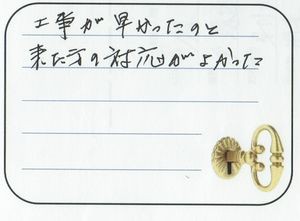 工事が早かったのと
来た方の対応がよかった